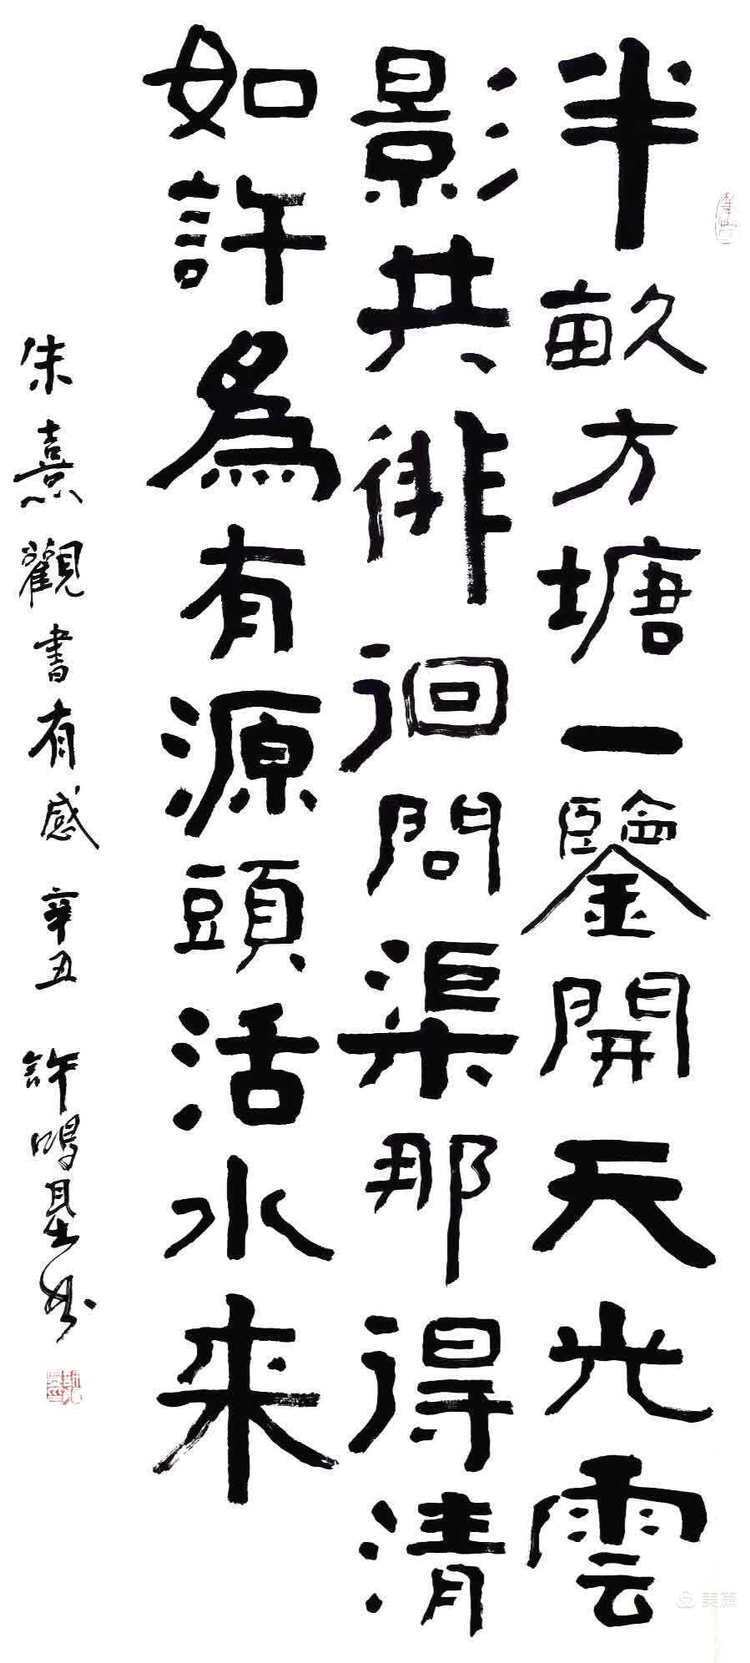 半畝方塘一鑒開天光雲
影共徘徊問渠那得清
如許為有源頭活水来
朱熹觀書有感 辛丑 許鴻星书
美篇